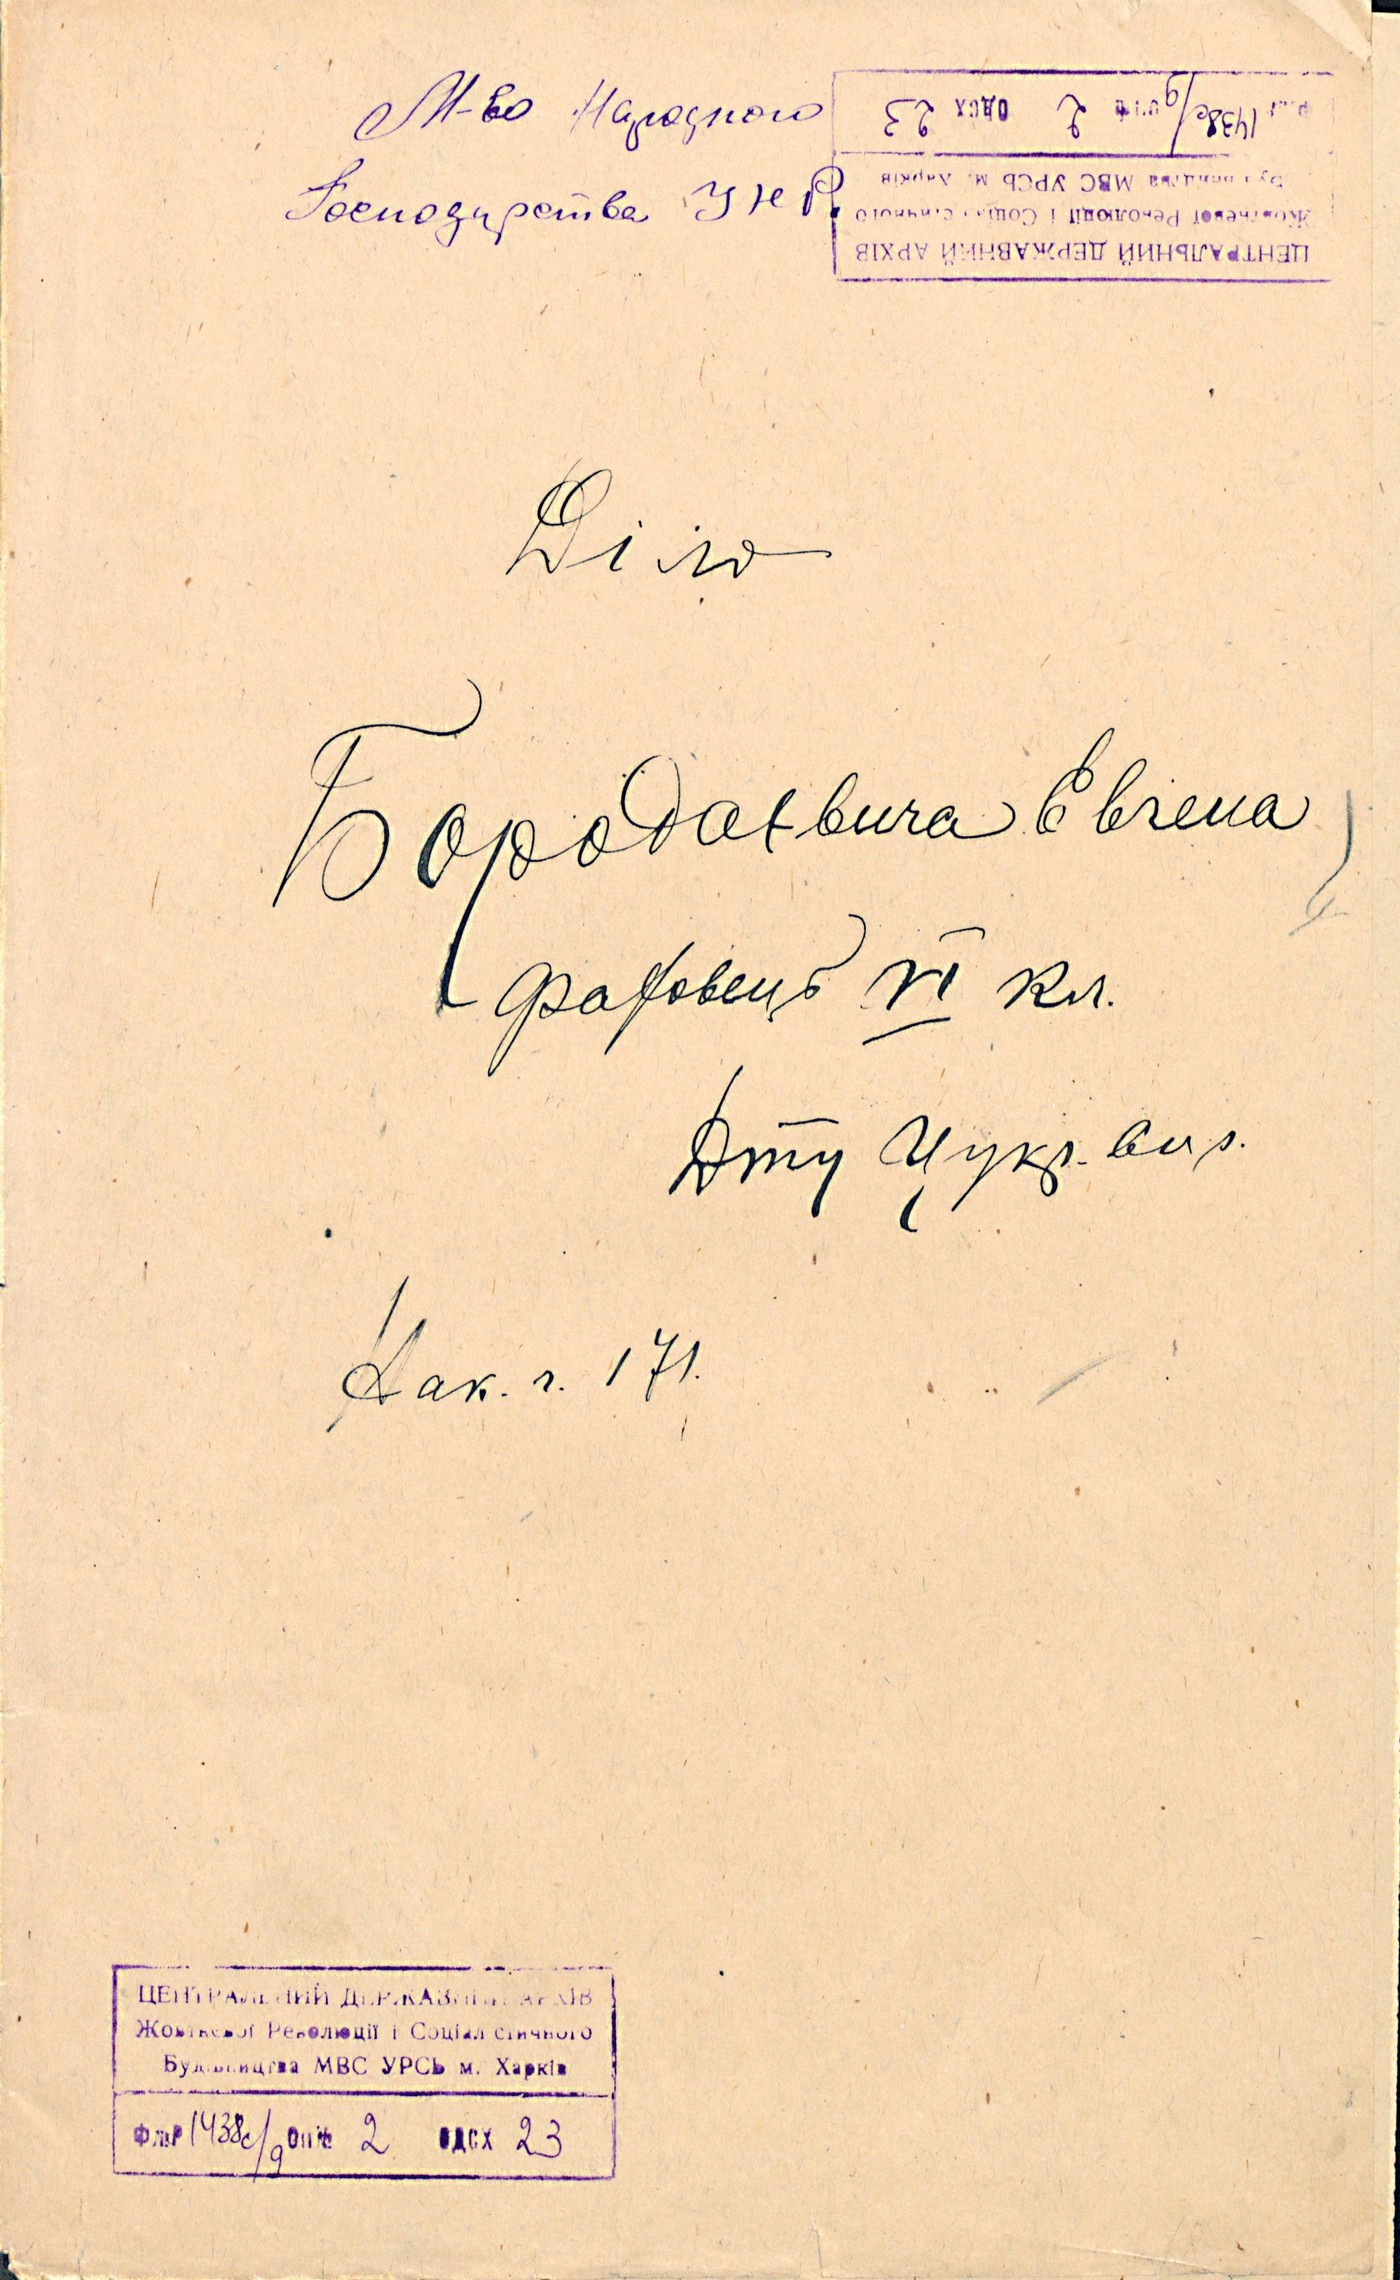 М-во Народного
Господарства УНР.
ЦЕНТРАЛЬНИЙ ДЕРЖАВНИЙ АРХІВ
Жовтневої Революції і Соціалістичного
Будівництва МВС УРСЬ м. Харків
1438с/9 2 ОДСХ 23
Діло
Бородаєвича Євгена
фаховець VI кл.
Дту Цукр.
Нак. г. 171.
ЦЕНТРАЛЬНИЙ ДЕРЖАВНИЙ АРХІВ
Жовтневої Революції і Соціалістичного
Будівництва МВС УРСЬ м. Харків
1438с/9 2 ОДСХ 23